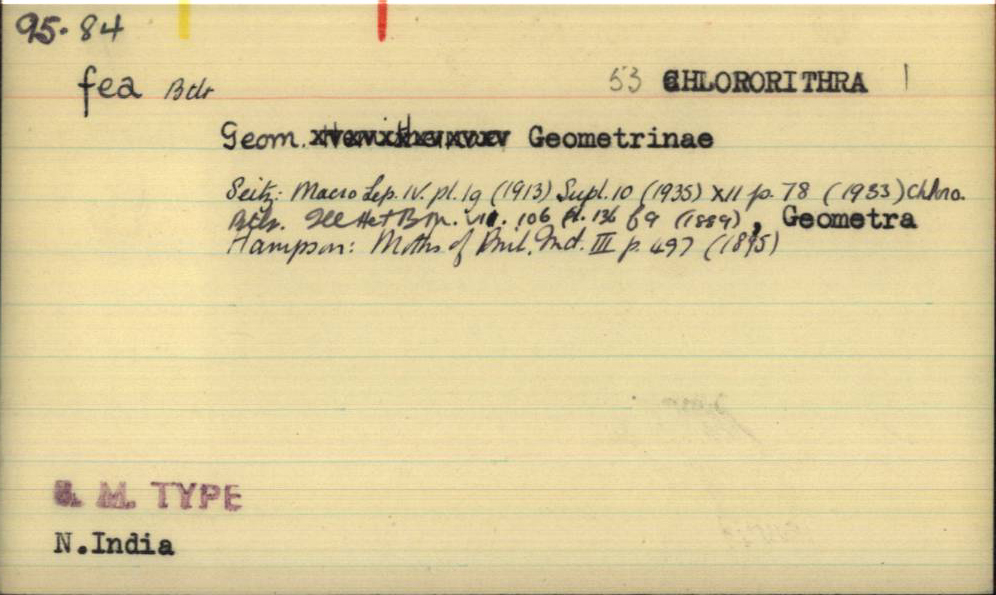 95.84
fea Btlr 53 CHLORORITHRA 1
Geom. Geometrinae
Seitz: Macro Lep. IV. pl. 1g (1913) Supl. 10 (1935) XII p. 78 (1933) Chloro.
Btlr. Ill Het B M. VII. 106 pl. 136 f 9 (1889), Geometra
Hampson: Moths of Brit. Ind. III p. 497 (1895)
B. M. TYPE
N.India